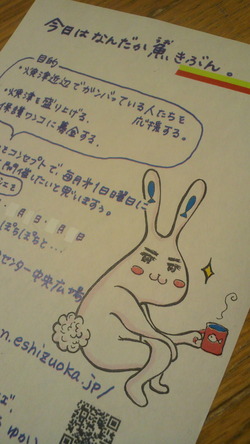 今日はなんだか 焦 きぶん。
目的
・焼津近辺でガンバっている人たちを
応援する。
・焼津を盛り上げる。
保護ワンコに募金する。
コンセプトで、毎月オ1日曜日に
開催したいと思いますっ。
月 日・ 月 日・
ぼちぼちと…
センター中央広場
n.eshizuoka.jp/